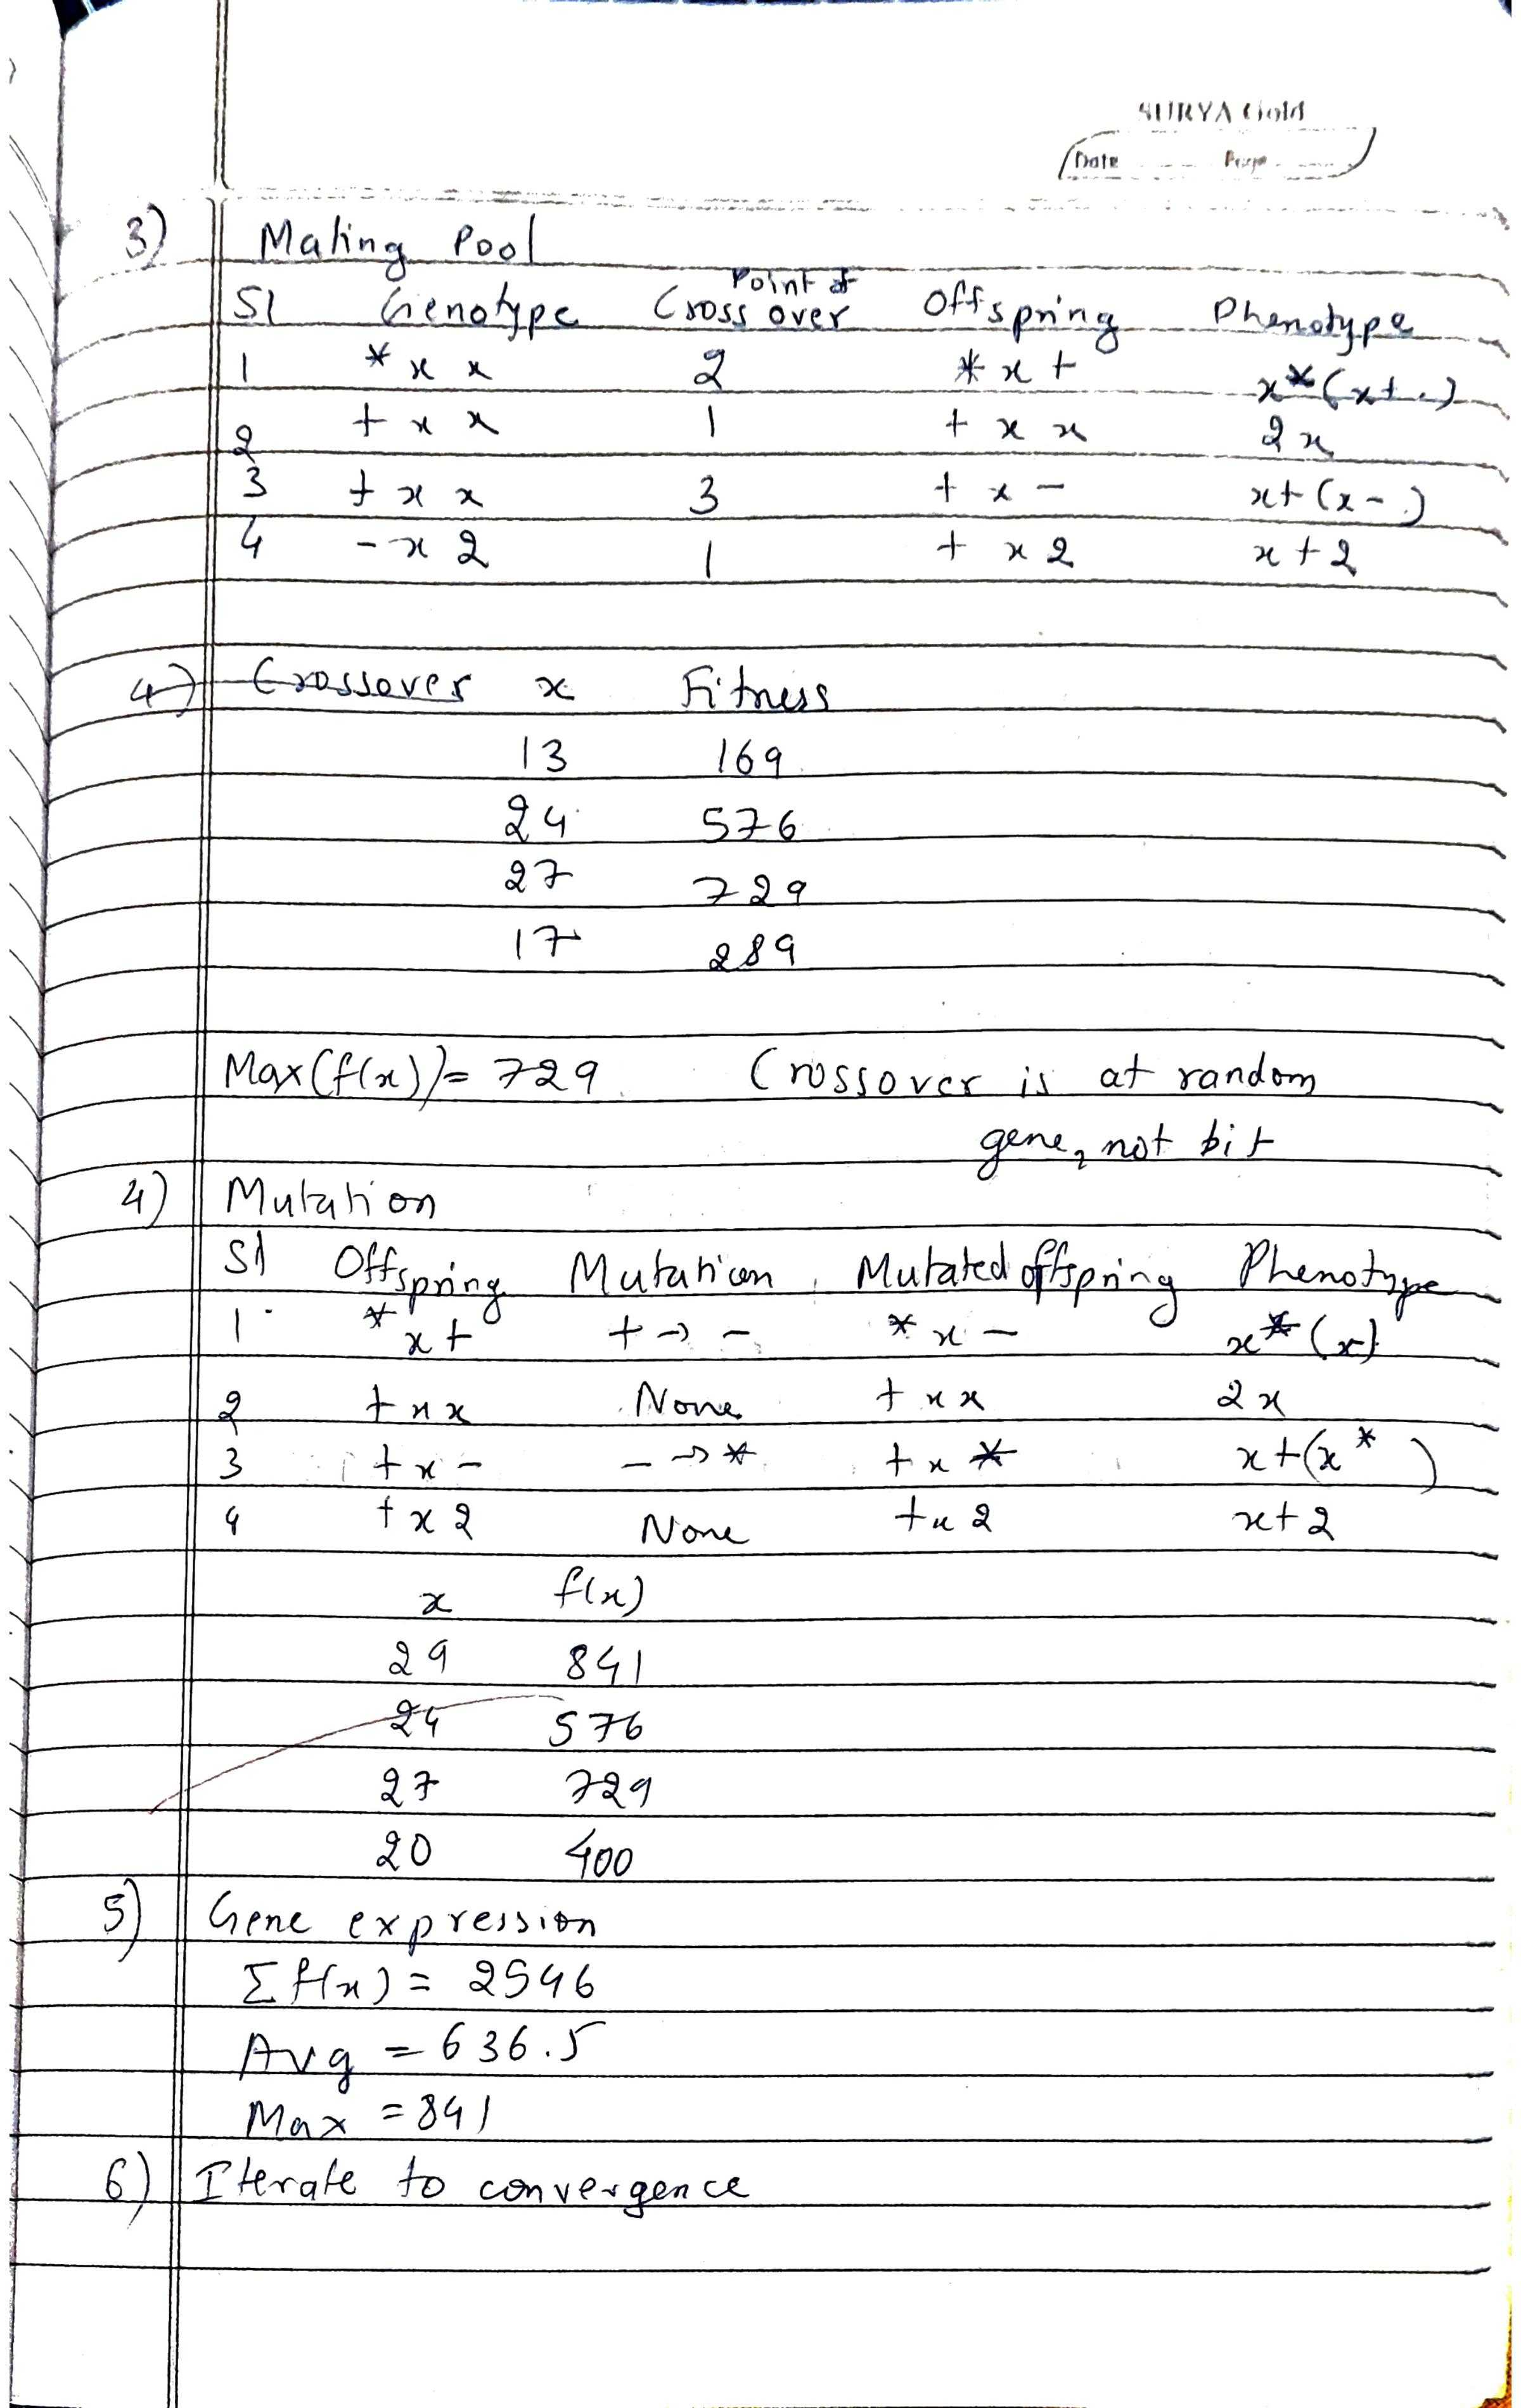 SURYA Gold
Date Page
3) Mating Pool
Sl Genotype Point of Cross over Offspring Phenotype
1 * x x 2 * x + x*(x+.)
2 + x x 1 + x x 2x
3 + x x 3 + x - x+(x-.)
4 - x 2 1 + x 2 x+2
4) Crossover x Fitness
13 169
24 576
27 729
17 289
Max(f(x))= 729 Crossover is at random
gene, not bit
4) Mutation
Sl Offspring Mutation Mutated offspring Phenotype
1 * x + + → - * x - x*(x-)
2 + x x None + x x 2x
3 + x - - → * + x * x+(x* )
4 + x 2 None + x 2 x+2
x f(x)
29 841
24 576
27 729
20 400
5) Gene expression
Σ f(x) = 2546
Avg = 636.5
Max = 841
6) Iterate to convergence